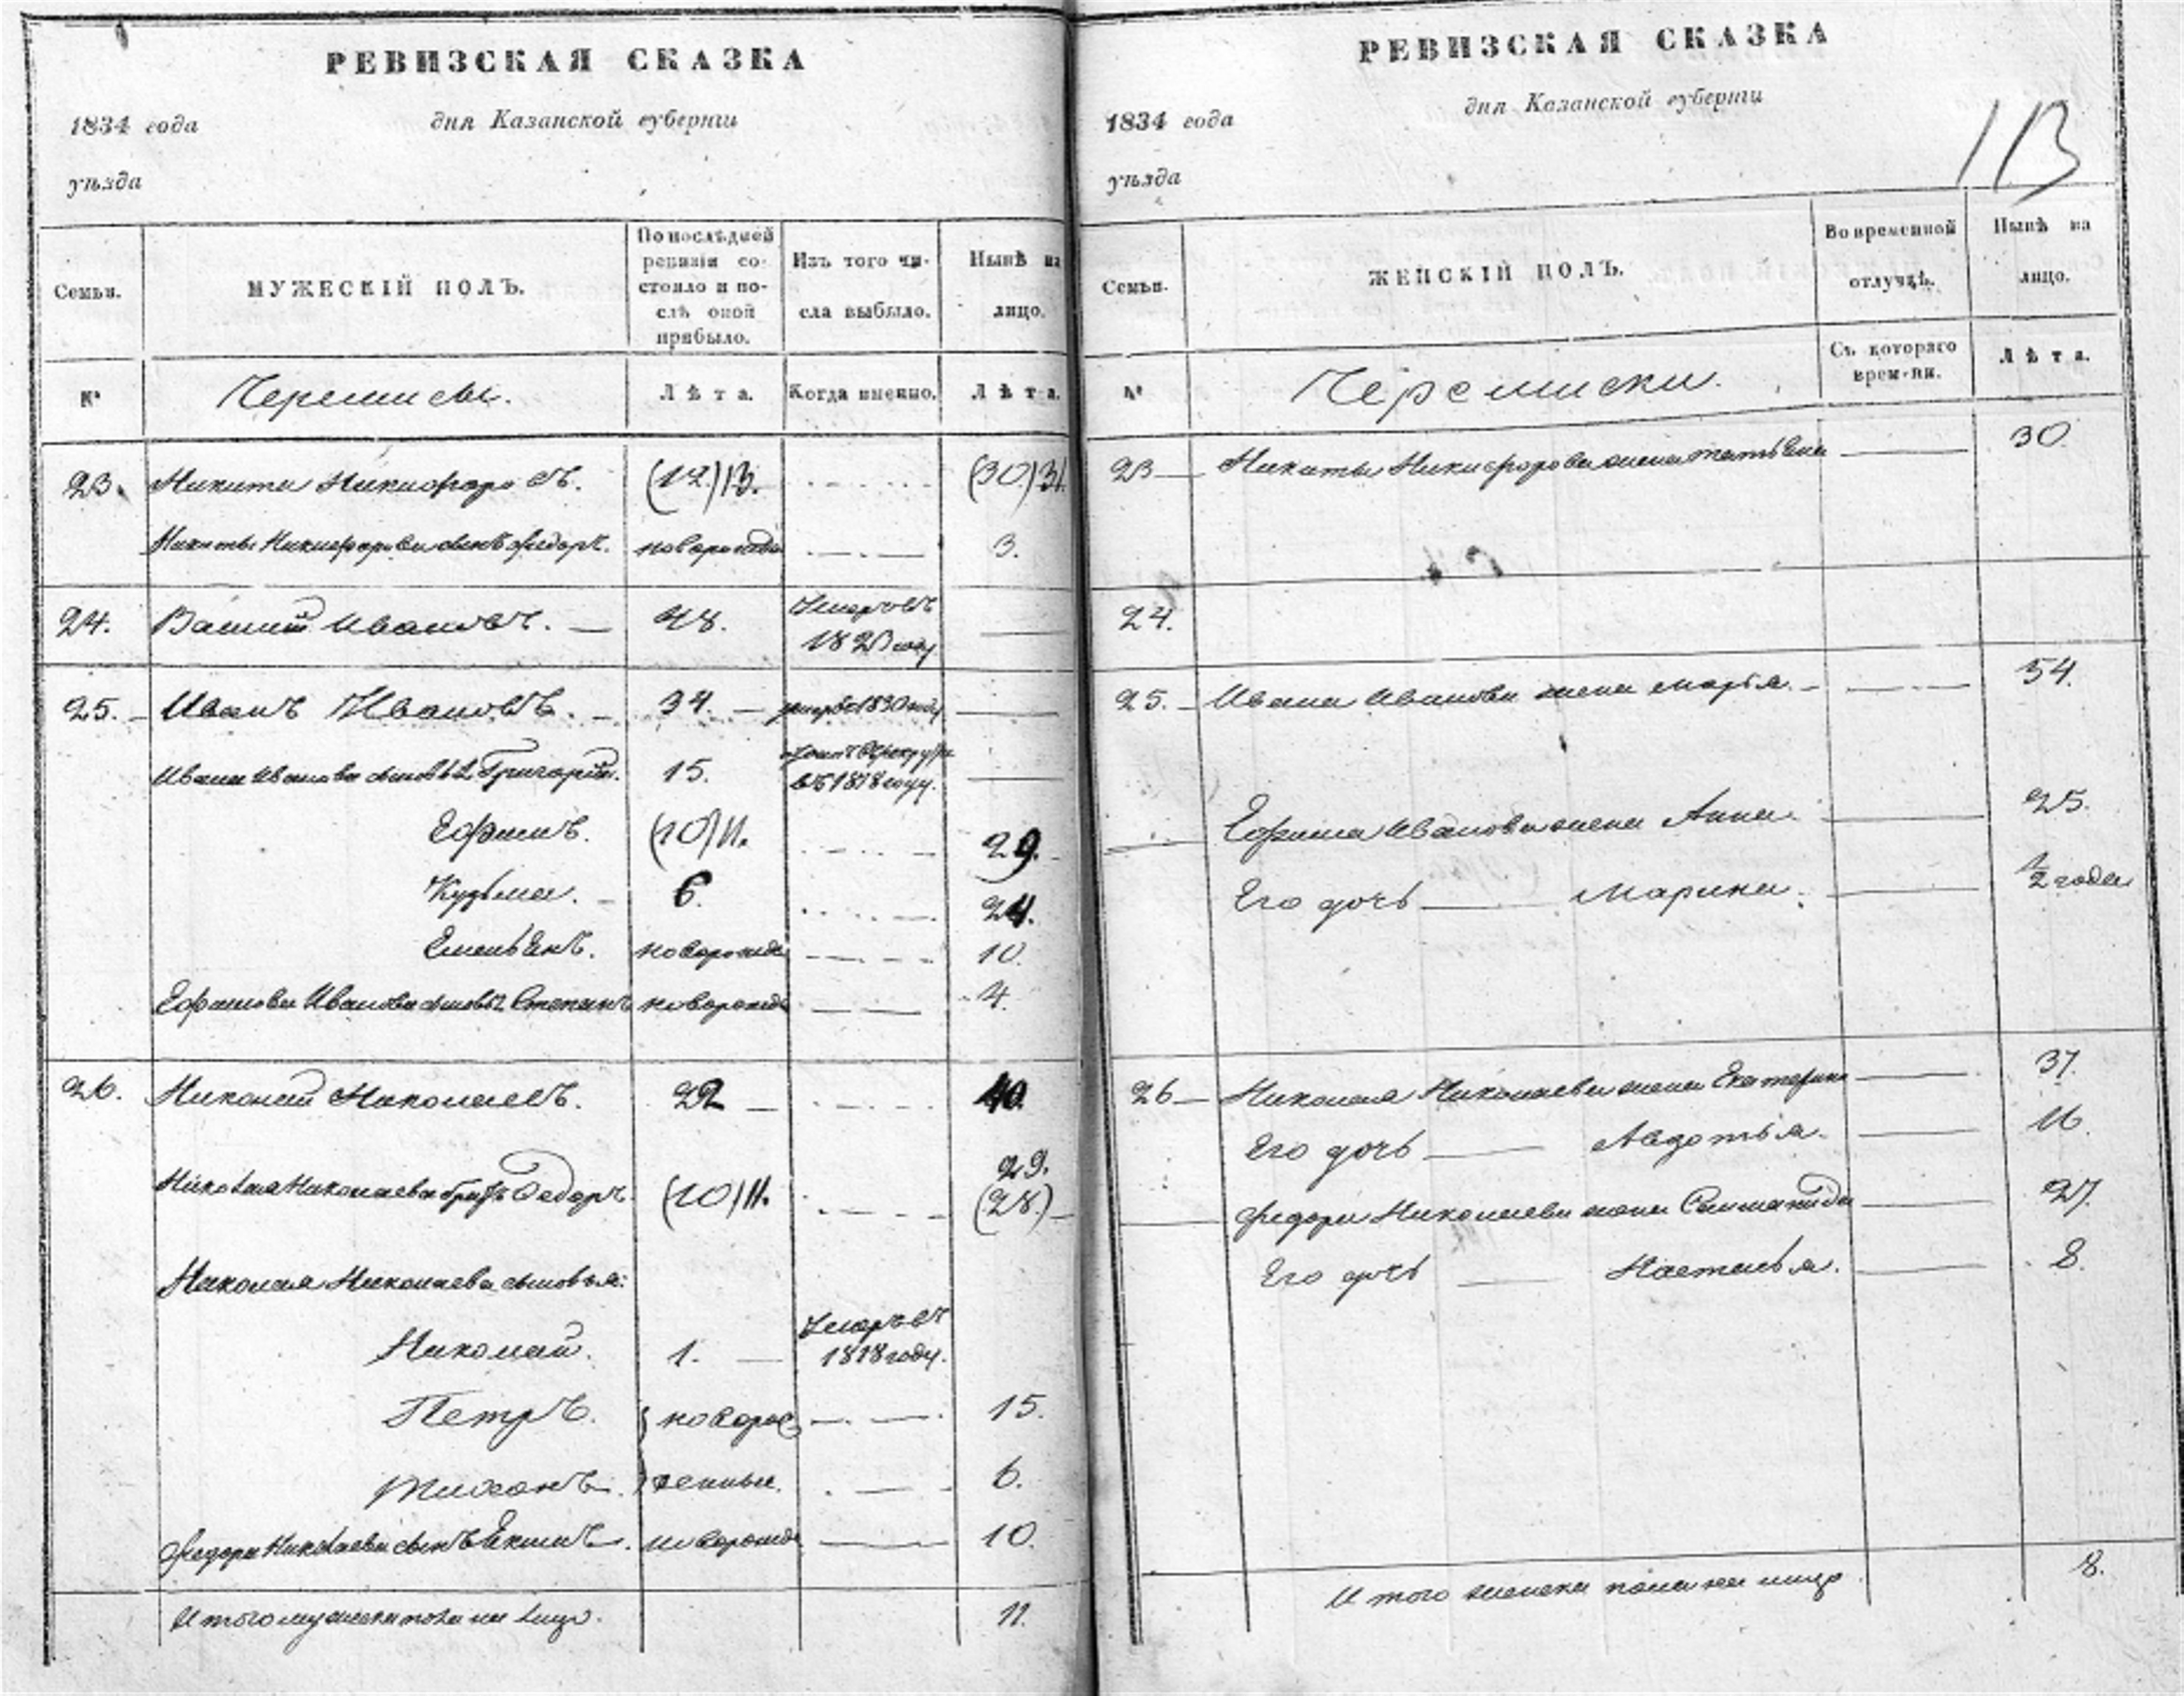 РЕВИЗСКАЯ СКАЗКА
1834 года дня Казанской губерніи
уѣзда
Семьи.
МУЖЕСКІЙ ПОЛЪ.
По послѣдней ревизіи состояло и послѣ оной прибыло.
Изъ того числа выбыло.
Нынѣ на лицо.
№ Черемисы. Лѣта. Когда именно. Лѣта.
23. Никита Никифоровъ. (12) 13. (30) 31.
Никиты Никифорова сынъ Федоръ. новорожден 3.
24. Иванов. 48. Умеръ въ
году
25. Иванъ Ивановъ. 34. умер в 1830 году
Ивана Иванова сыновья Григорій. 15.
въ 1818 году.
Ефимъ. (10) 11. 29.
Кузьма. 6. 24.
новорожде 10.
Ефимова Иванова Степанъ новорожде 4.
26. Николай Николаевъ. 22 40.
29.
Николая Николаева братъ Федоръ. (10) 11. (28.)
Николая Николаева сыновья:
Умеръ въ
Николай. 1. 1818 году.
Петръ. новорож 15.
Тихонъ. денные. 6.
Федора Николаева сынъ Екимъ. новорожд 10.
Итого мужеска пола на лицо. 11.
РЕВИЗСКАЯ СКАЗКА
1834 года дня Казанской губерніи
113
уѣзда
Семьи.
ЖЕНСКІЙ ПОЛЪ.
Во временной отлучкѣ.
Нынѣ на лицо.
№ Черемиски. Съ котораго времени. Лѣта.
23 Никиты Никифорова жена Татьяна 30.
24.
25. Ивана Иванова жена Марья. 54.
Ефима Иванова жена Анна. 25.
Его дочь Марина. 1/2 года
26 Николая Николаева жена Екатерина 37.
Его дочь Авдотья. 16.
Федора Николаева жена 27.
Его дочь Настасья. 8.
Итого женска пола на лицо 8.